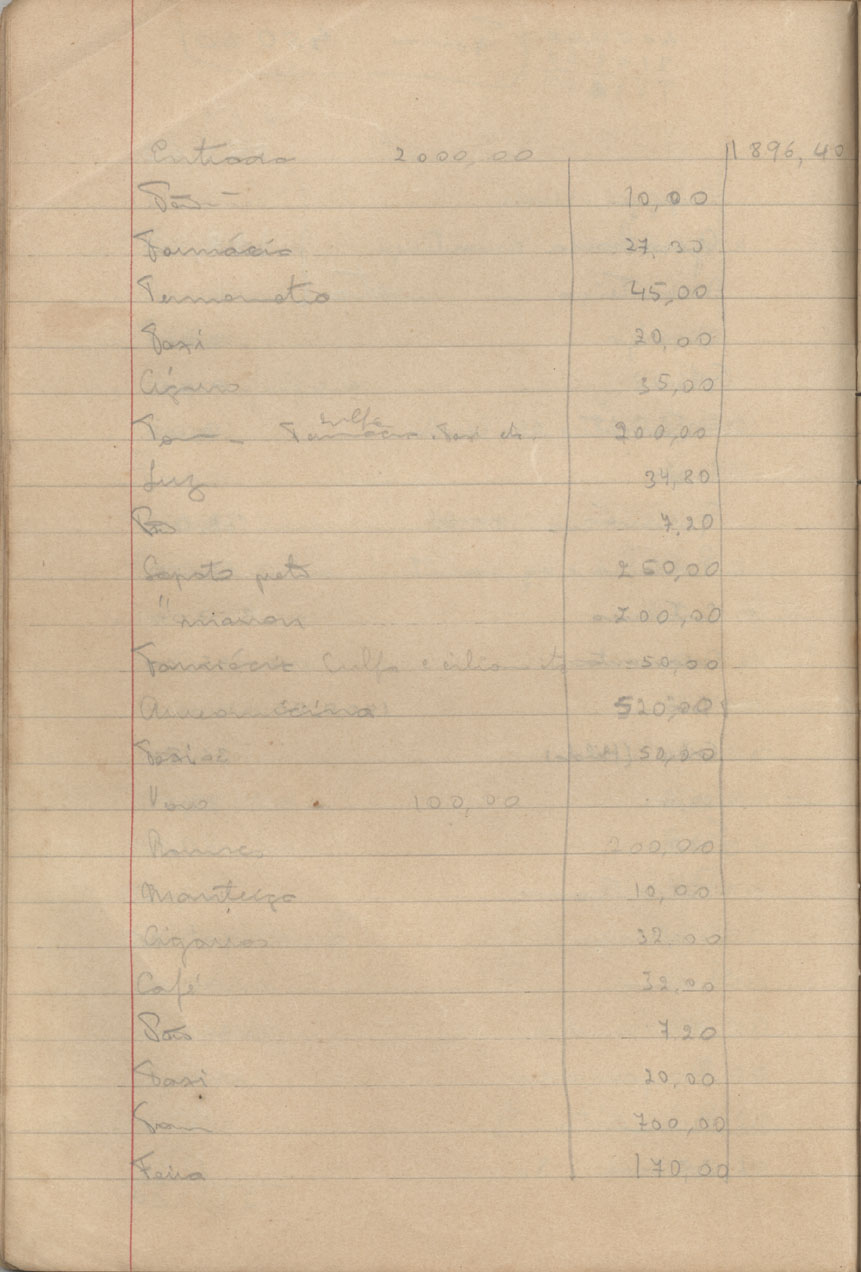 Entrada 2000,00 1896,40
Pão 10,00
Farmácia 27,30
Termometro 45,00
Taxi 20,00
Cigarro 35,00
sulfa
Farmácia Taxi etc. 200,00
Luz 34,80
Pão 7,20
Sapato preto 250,00
" 200,00
Farmácia Sulfa e 50,00
520,00
Taxi 50,00
Vovo 100,00
200,00
Manteiga 10,00
Cigarros 32,00
Café 32,00
Pão 7,20
Taxi 20,00
700,00
Feira 170,00